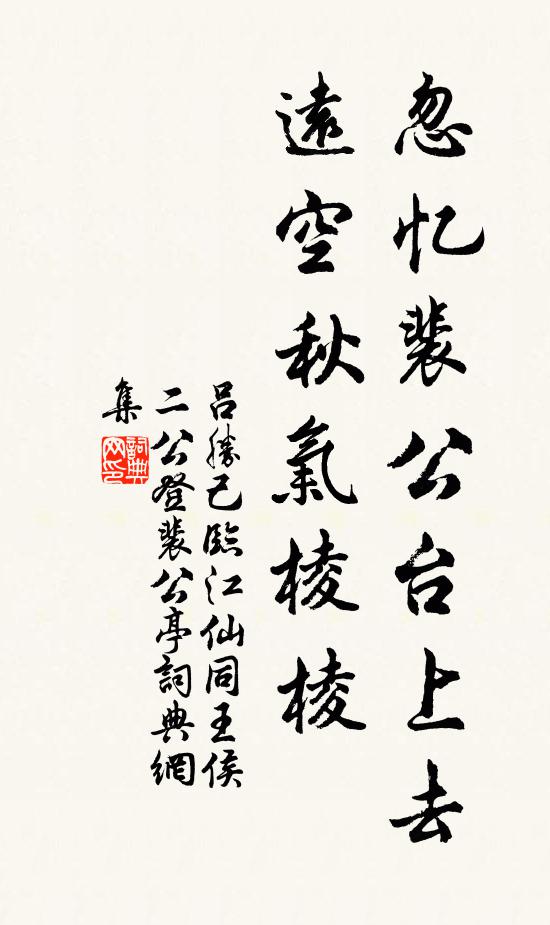 忽忆裴公台上去
遠空秋氣棱棱
呂勝己臨江仙同王侯
二公登裴公亭詞典網
集
詞典網印